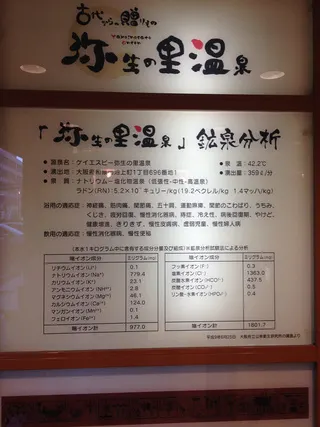 古代からの贈りもの
弥生の里温泉
「弥生の里温泉」鉱泉分析
●源泉名：ケイエスピー弥生の里温泉
●泉 温：42.2℃
●湧出地：大阪府和泉市池上町1丁目696番地1
●湧出量：359ℓ/分
●泉 質：ナトリウム－塩化物温泉（低張性-中性-高温泉）
ラドン(RN)5.2×10 キュリー/kg(19.2ベクレル/kg 1.4マッハ/kg)
浴用の適応症：神経痛、筋肉痛、関節痛、五十肩、運動麻痺、関節のこわばり、うちみ、
くじき、夜対旧重、慢性消化器病、痔症、冷え性、病後回復期、やけど、
健康増進、きりきず、慢性皮膚病、虚弱児童、慢性婦人病
飲用の適応症：慢性消化器病、慢性便秘
(本水1キログラム中に含有する成分分量及び組成)※鉱泉分析試験法による分析
陽イオン成分 ミリグラム(mg)
リチウムイオン(Li⁺) 0.1
ナトリウムイオン(Na⁺) 779.4
カリウムイオン(K⁺) 23.1
アンモニウムイオン(NH⁴) 2.8
マグネシウムイオン(Mg⁺⁺) 46.1
カルシウムイオン(Ca⁺⁺) 124.0
マンガンイオン(Mn⁺⁺) 0.1
フェロイオン(Fe⁺⁺) 1.4
陽イオン計 977.0
陰イオン成分 ミリグラム(mg)
フッ素イオン(F⁻) 0.3
塩素イオン(Cl⁻) 1363.0
炭酸水素イオン(HCO³⁻) 437.5
炭酸イオン(CO₃⁻⁻) 0.5
リン酸-水素イオン(HPO₄⁻⁻) 0.4
陰イオン計 1801.7